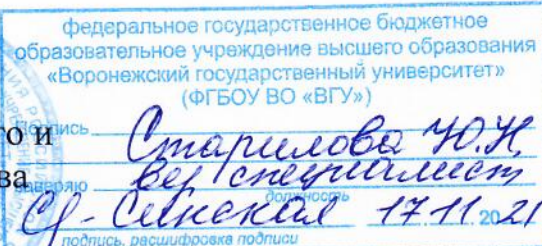 федеральное государственное бюджетное
образовательное учреждение высшего образования
«Воронежский государственный университет»
(ФГБОУ ВО «ВГУ»)
го и
Подпись Старилова Ю.Н.
ва
заверяю вед специалист
должность
17 11 2021
подпись, расшифровка подписи